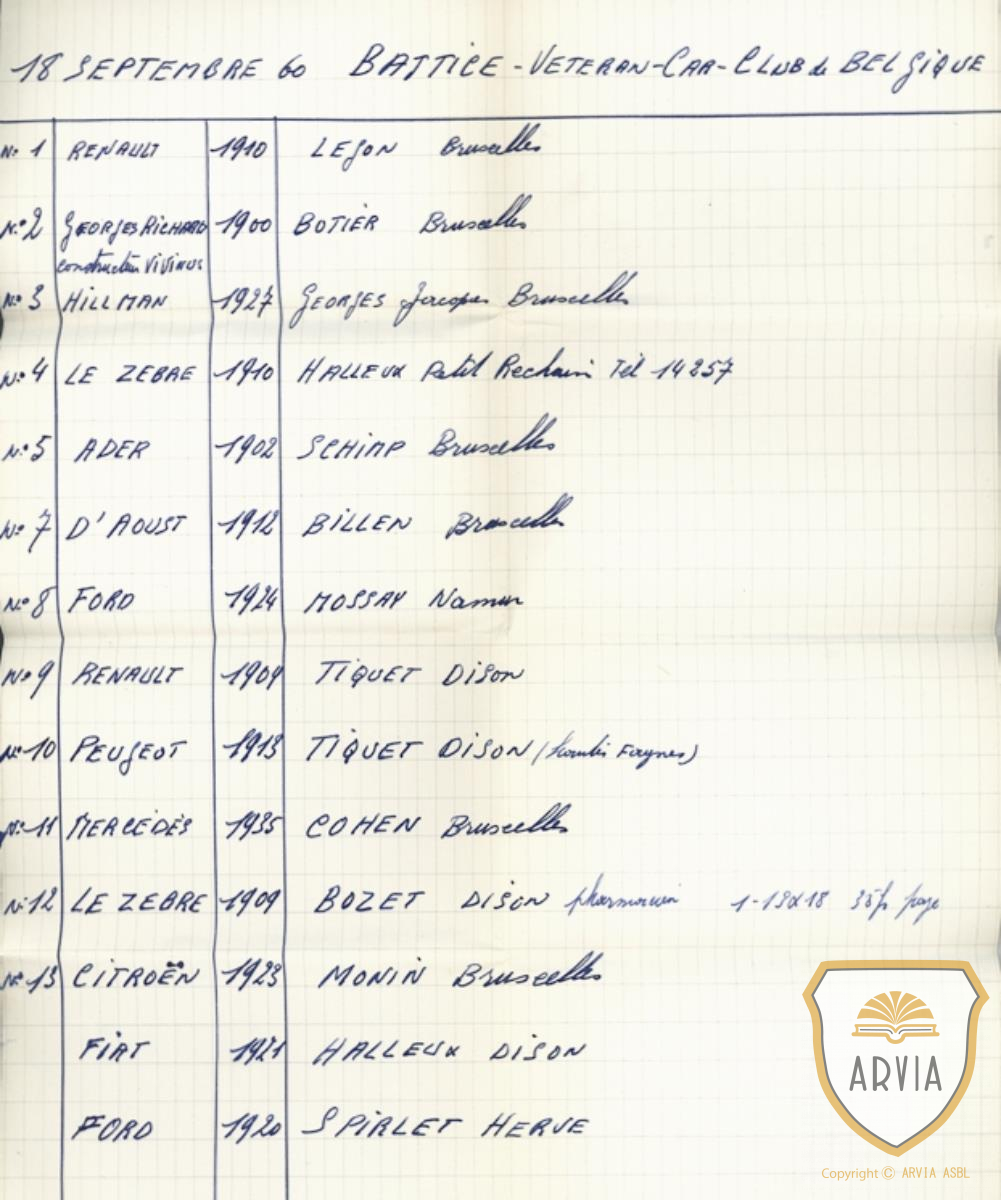 18 SEPTEMBRE 60 BATTICE - VETERAN-CAR-CLUB de BELGIQUE
N° 1 RENAULT 1910 LEJON Bruxelles
N° 2 GEORGES RICHARD 1900 BOTIER Bruxelles
constructeur VIVINUS
N° 3 HILLMAN 1927 GEORGES Jacques Bruxelles
N° 4 LE ZEBRE 1910 HALLEUX Petit Rechain Tél 14257
N° 5 ADER 1902 SCHIMP Bruxelles
N° 7 D'AOUST 1912 BILLEN Bruxelles
N° 8 FORD 1924 MOSSAY Namur
N° 9 RENAULT 1909 TIQUET DISON
N° 10 PEUGEOT 1913 TIQUET DISON
N° 11 MERCEDÈS 1935 COHEN Bruxelles
N° 12 LE ZEBRE 1909 BOZET DISON pharmacien page
N° 13 CITROËN 1923 MONIN Bruxelles
FIAT 1921 HALLEUX DISON
FORD 1920 SPIRLET HERVE
ARVIA
Copyright © ARVIA ASBL